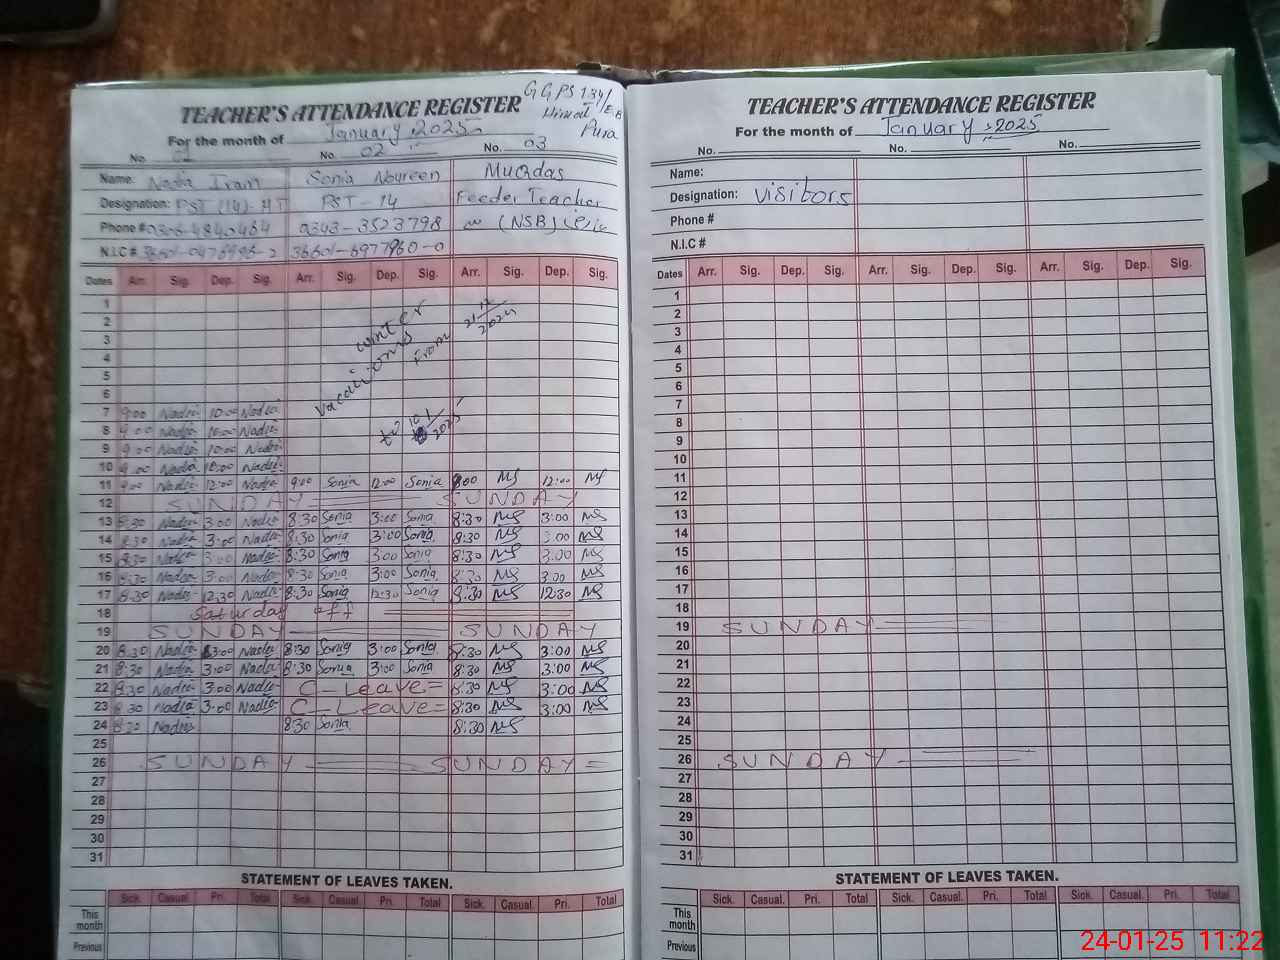 GGPS 134/EB
TEACHER'S ATTENDANCE REGISTER
For the month of January, 2025
Pura
No. 02 No. 03
Name: Nadia Iram Sonia Noureen Muqdas
Designation: PST (14)-HT PST - 14 Feeder Teacher
Phone # 0343-3523798 (NSB)
N.I.C #
Dates Arr. Sig. Dep. Sig. Arr. Sig. Dep. Sig. Arr. Sig. Dep. Sig.
1
2
3
4
5
6
winter vacations from 21/12/2024
to 10/1/2025
7 9:00 Nadia 10:00 Nadia
8 9:00 Nadia 10:00 Nadia
9 9:00 Nadia 10:00 Nadia
10 9:00 Nadia 10:00 Nadia
11 9:00 Nadia 12:00 Nadia 9:00 Sonia 12:00 Sonia 9:00 MS 12:00 MS
12 SUNDAY SUNDAY
13 8:30 Nadia 3:00 Nadia 8:30 Sonia 3:00 Sonia 8:30 MS 3:00 MS
14 8:30 Nadia 3:00 Nadia 8:30 Sonia 3:00 Sonia 8:30 MS 3:00 MS
15 8:30 Nadia 3:00 Nadia 8:30 Sonia 3:00 Sonia 8:30 MS 3:00 MS
16 8:30 Nadia 3:00 Nadia 8:30 Sonia 3:00 Sonia 8:30 MS 3:00 MS
17 8:30 Nadia 12:30 Nadia 8:30 Sonia 12:30 Sonia 8:30 MS 12:30 MS
18 Saturday off
19 SUNDAY SUNDAY
20 8:30 Nadia 3:00 Nadia 8:30 Sonia 3:00 Sonia 8:30 MS 3:00 MS
21 8:30 Nadia 3:00 Nadia 8:30 Sonia 3:00 Sonia 8:30 MS 3:00 MS
22 8:30 Nadia 3:00 Nadia C-Leave 8:30 MS 3:00 MS
23 8:30 Nadia 3:00 Nadia C-Leave 8:30 MS 3:00 MS
24 8:30 Nadia 8:30 Sonia 8:30 MS
25
26 SUNDAY SUNDAY
27
28
29
30
31
STATEMENT OF LEAVES TAKEN.
Sick. Casual. Pri. Total Sick. Casual. Pri. Total Sick. Casual. Pri. Total
This month
Previous
TEACHER'S ATTENDANCE REGISTER
For the month of January, 2025
No. No. No.
Name:
Designation: visitors
Phone #
N.I.C #
Dates Arr. Sig. Dep. Sig. Arr. Sig. Dep. Sig. Arr. Sig. Dep. Sig.
1
2
3
4
5
6
7
8
9
10
11
12
13
14
15
16
17
18
19 SUNDAY
20
21
22
23
24
25
26 SUNDAY
27
28
29
30
31
STATEMENT OF LEAVES TAKEN.
Sick. Casual. Pri. Total Sick. Casual. Pri. Total Sick. Casual. Pri. Total
This month
Previous
24-01-25 11:22